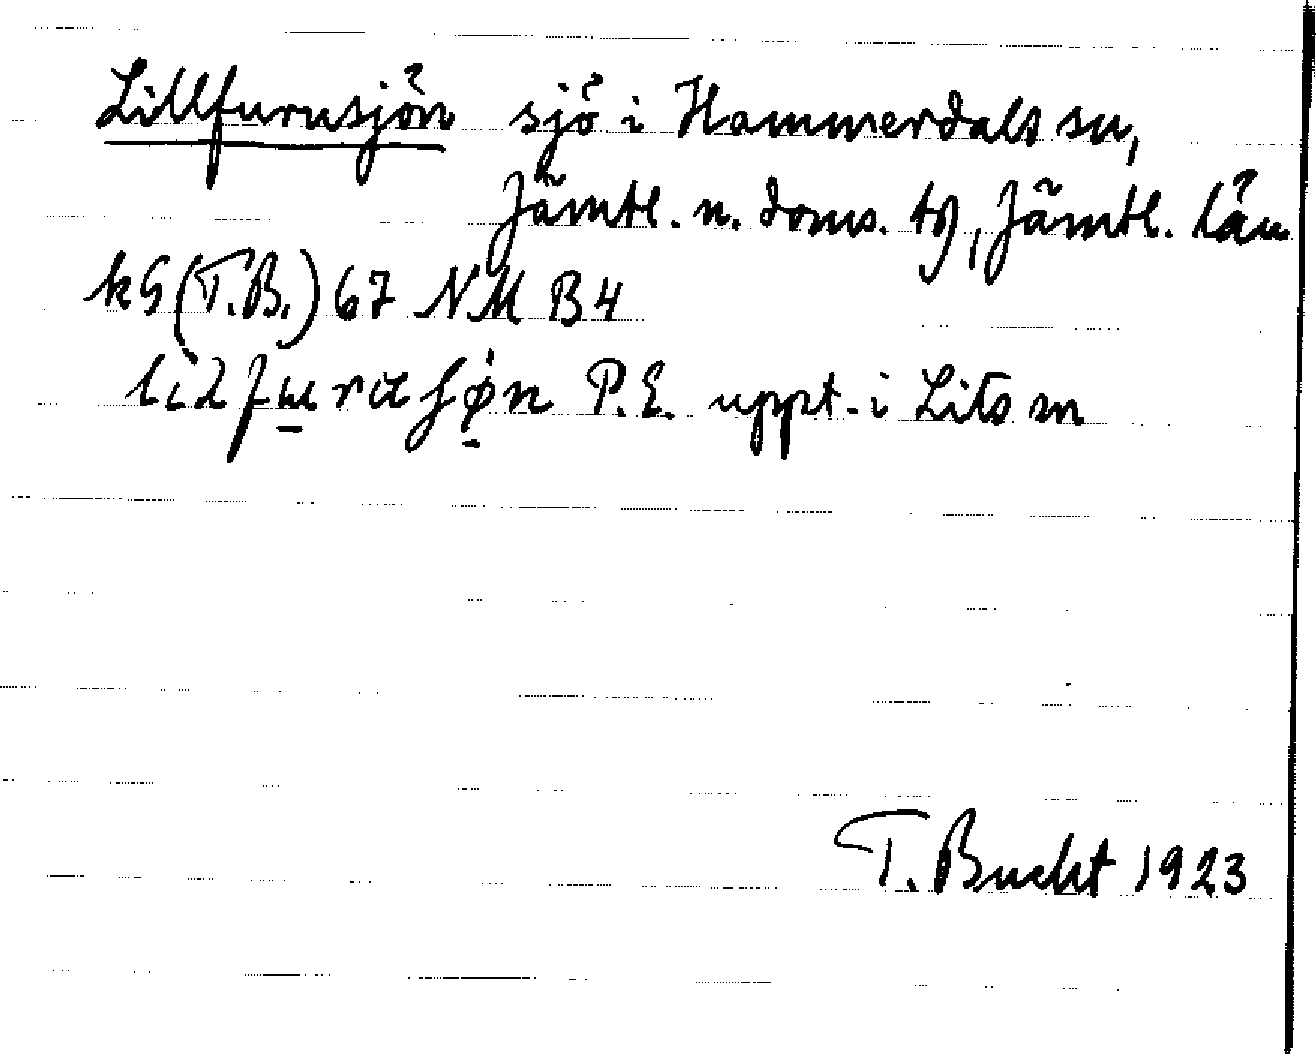 Lillfurusjön sjö i Hammerdals sn,
Jämtl. n. doms. td, Jämtl. län
kG (T.B.) 67 NM B4
P.E. uppt. i Lits sn
T. Bucht 1923